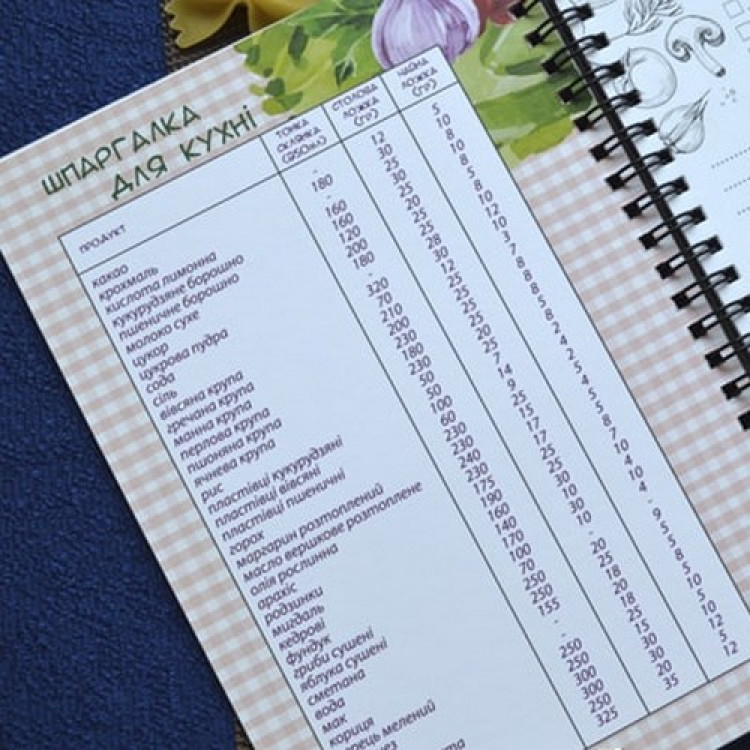 ШПАРГАЛКА
ДЛЯ КУХНІ
ПРОДУКТ
ТОНКА
СКЛЯНКА
(250мл)
СТОЛОВА
ЛОЖКА
(ГР)
ЧАЙНА
ЛОЖКА
(ГР)
какао
крохмаль
кислота лимонна
кукурудзяне борошно
пшеничне борошно
молоко сухе
цукор
цукрова пудра
сода
сіль
вівсяна крупа
гречана крупа
манна крупа
перлова крупа
пшоняна крупа
ячнева крупа
рис
пластівці кукурудзяні
пластівці вівсяні
пластівці пшеничні
горох
маргарин розтоплений
масло вершкове розтоплене
олія рослинна
арахіс
родзинки
мигдаль
кедрові
фундук
гриби сушені
яблука сушені
сметана
вода
мак
кориця
мелений
-
180
-
160
160
120
200
180
-
320
70
210
200
230
180
230
50
50
100
60
230
230
240
230
175
190
160
140
170
100
70
250
250
155
-
-
250
250
300
300
250
325
12
30
25
30
25
20
25
25
28
30
12
25
25
25
20
25
7
14
9
25
15
17
17
25
25
30
10
30
10
-
20
25
18
20
18
25
15
30
30
20
35
5
10
8
10
8
5
8
10
12
10
3
7
8
8
8
5
8
2
4
2
5
4
5
5
8
7
10
4
10
4
-
9
5
5
8
5
10
5
10
12
5
12